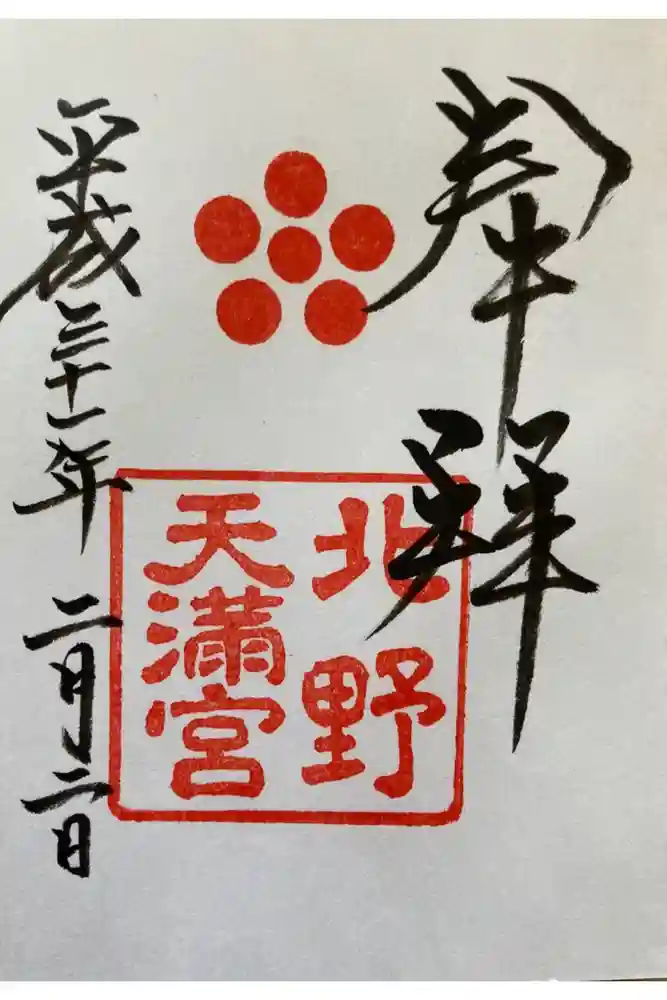 奉拝
北野
天満宮
平成三十一年 二月二日